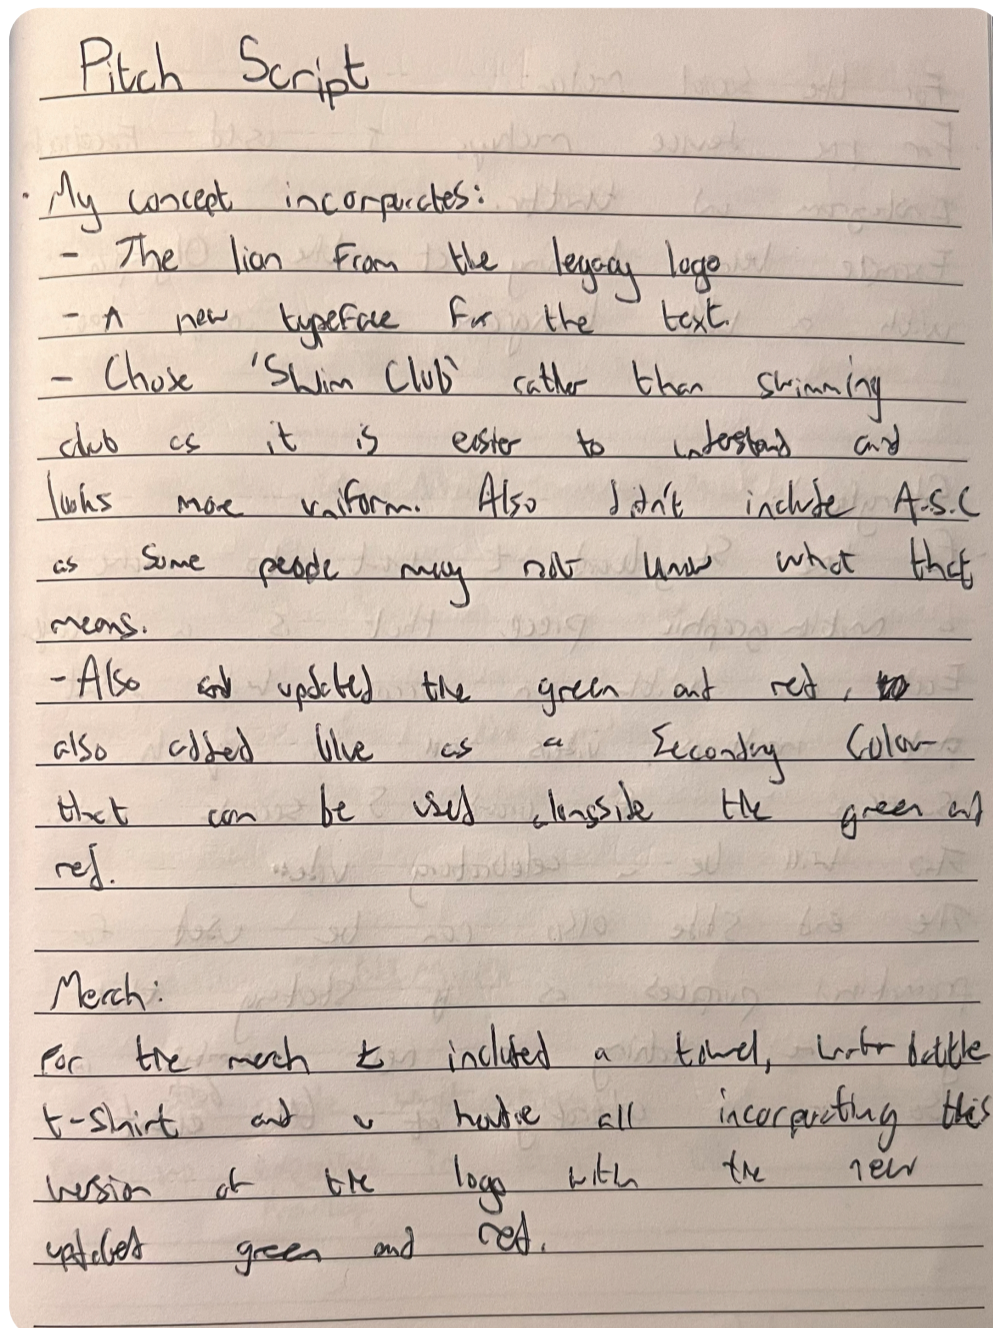 Pitch Script
· My concept incorporates:
- The lion from the legacy logo
- A new typeface for the text.
- Chose 'Swim Club' rather than swimming
club as it is easier to understand and
looks more uniform. Also didn't include A.S.C
as some people may not know what that
means.
- Also updated the green and red,
also added blue as a Secondary Colour
that can be used alongside the green and
red.
Merch:
For the merch I included a towel, water bottle
t-shirt and a hoodie all incorporating this
version of the logo with the new
updated green and red.